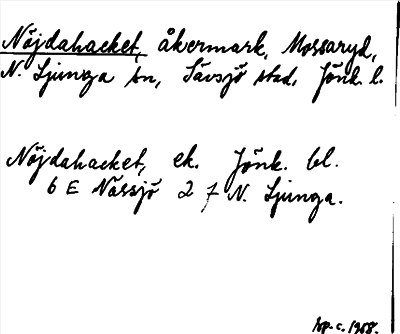 Nöjdahacket, åkermark, Mossaryd,
N. Ljunga sn, Sävsjö stad, Jönk. l.
Nöjdahacket, ek. Jönk. bl.
6 E Nässjö 2 7 N. Ljunga.
op. c. 1968.